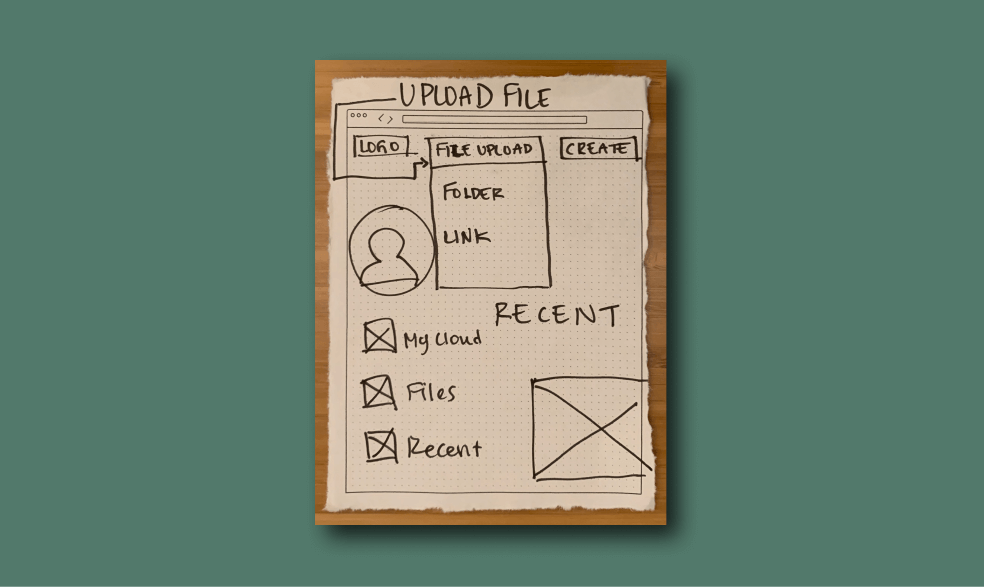 UPLOAD FILE
LOGO
FILE UPLOAD
CREATE
FOLDER
LINK
RECENT
My Cloud
Files
Recent